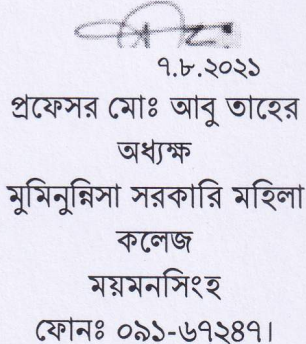 ৭.৮.২০২১
প্রফেসর মোঃ আবু তাহের
অধ্যক্ষ
মুমিনুন্নিসা সরকারি মহিলা
কলেজ
ময়মনসিংহ
ফোনঃ ০৯১-৬৭২৪৭।